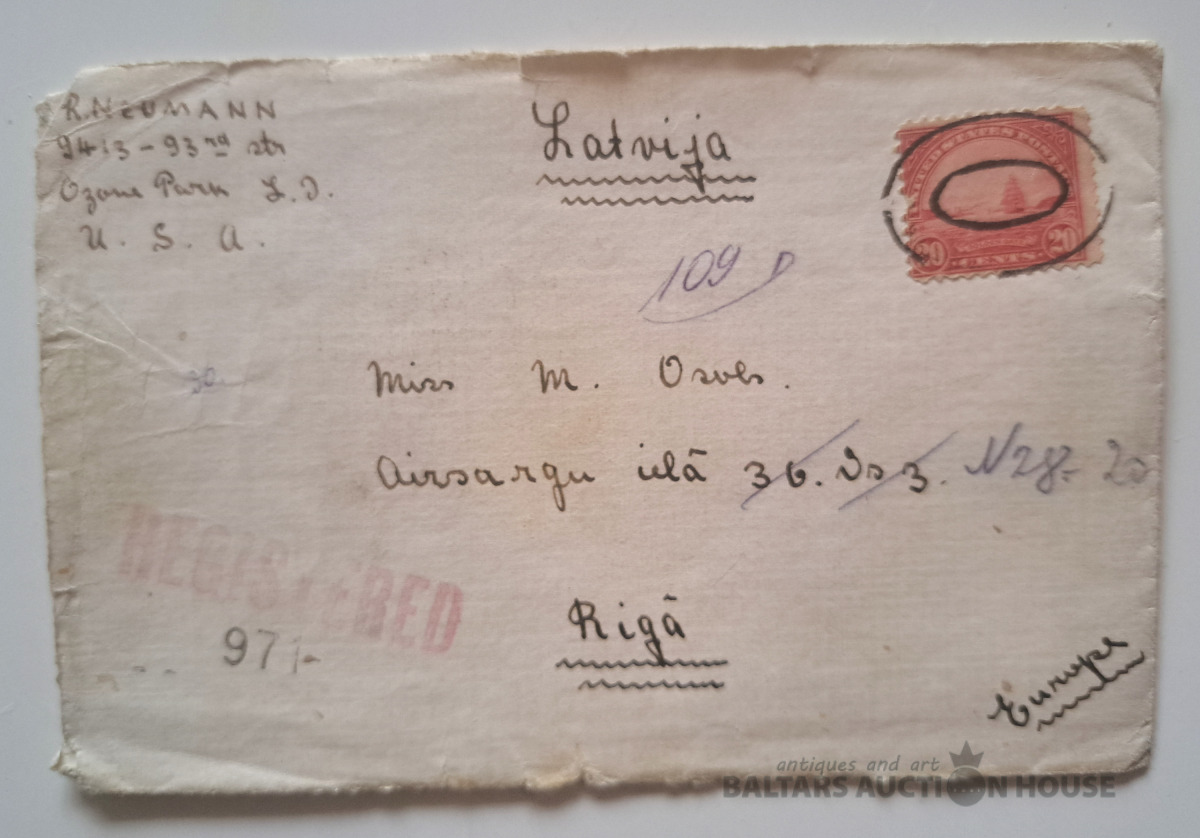 R. NEUMANN
9413 - 93rd str
Ozone Park L. I.
U. S. A.
Latvija
UNITED STATES POSTAGE
20 20
CENTS
109
Miss M. Osols.
Aizsargu ielā 36. Dz 3. N 28. - 20
Rigā
Europe
REGISTERED
971
antiques and art
BALTARS AUCTION HOUSE